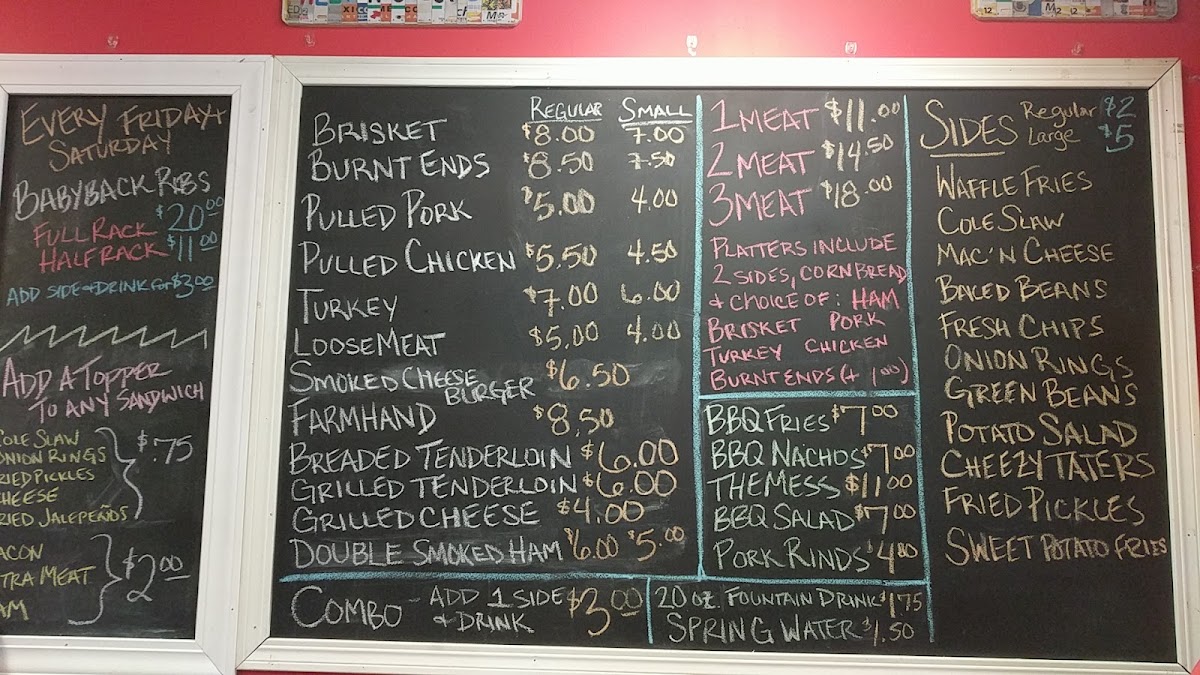 EVERY FRIDAY +
SATURDAY
BABYBACK RIBS
FULL RACK $20.00
HALF RACK $11.00
ADD SIDE & DRINK FOR $3.00
ADD A TOPPER
TO ANY SANDWICH
COLE SLAW
ONION RINGS
FRIED PICKLES
CHEESE
FRIED JALEPEÑOS
$.75
BACON
EXTRA MEAT
HAM
$2.00
REGULAR SMALL
BRISKET $8.00 7.00
BURNT ENDS $8.50 7.50
PULLED PORK $5.00 4.00
PULLED CHICKEN $5.50 4.50
TURKEY $7.00 6.00
LOOSEMEAT $5.00 4.00
SMOKED CHEESE
BURGER $6.50
FARMHAND $8.50
BREADED TENDERLOIN $6.00
GRILLED TENDERLOIN $6.00
GRILLED CHEESE $4.00
DOUBLE SMOKED HAM $6.00 $5.00
COMBO - ADD 1 SIDE
& DRINK $3.00
1 MEAT $11.00
2 MEAT $14.50
3 MEAT $18.00
PLATTERS INCLUDE
2 SIDES, CORNBREAD
& CHOICE OF: HAM
BRISKET PORK
TURKEY CHICKEN
BURNT ENDS (+ 1.00)
BBQ FRIES $7.00
BBQ NACHOS $7.00
THE MESS $11.00
BBQ SALAD $7.00
PORK RINDS $4.00
20 OZ FOUNTAIN DRINK $1.75
SPRING WATER $1.50
SIDES Regular $2
Large $5
WAFFLE FRIES
COLE SLAW
MAC'N CHEESE
BAKED BEANS
FRESH CHIPS
ONION RINGS
GREEN BEANS
POTATO SALAD
CHEEZY TATERS
FRIED PICKLES
SWEET POTATO FRIES